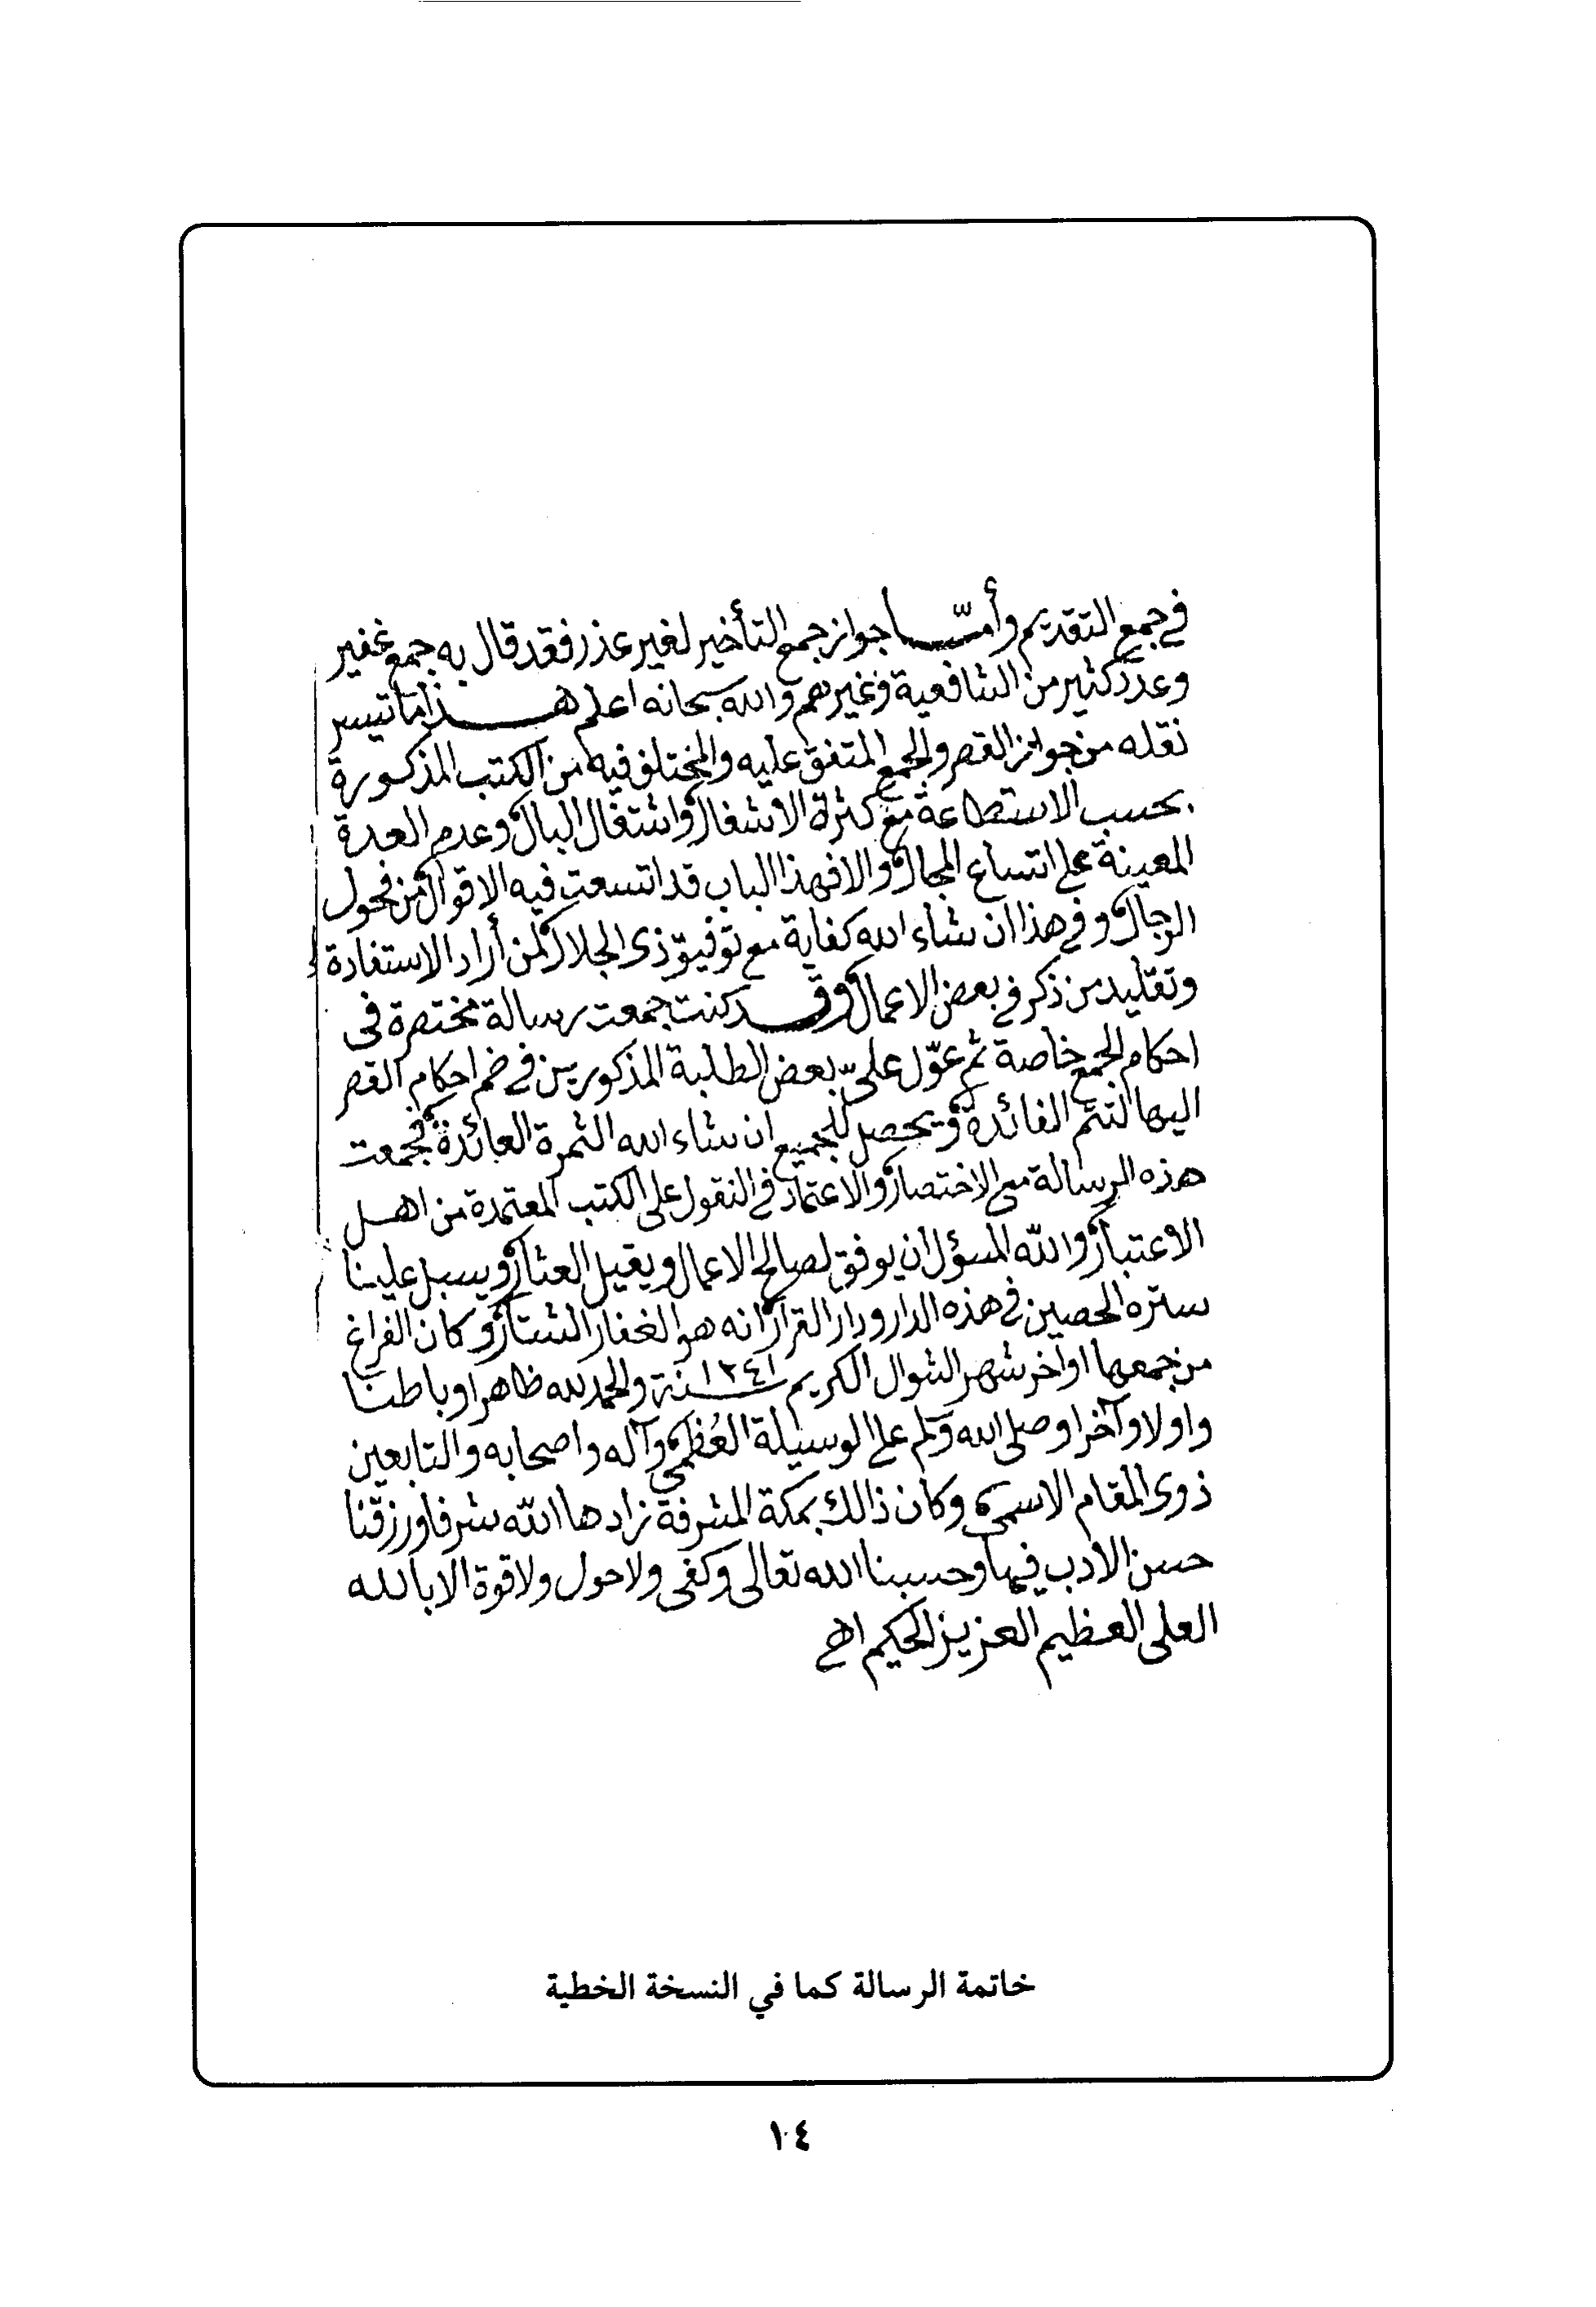 في جمع التقديم وأمّا جواز جمع التأخير لغير عذر فقد قال به جمع غفير
وعدد كثير من الشافعية وغيرهم والله سبحانه اعلم هذا ما تيسر
نقله من جواز القصر والجمع المتفق عليه والمختلف فيه من الكتب المذكورة
بحسب الاستطاعة مع كثرة الاشغال واشتغال البال وعدم العدة
المعينة على اتساع المجال والا فهذا الباب قد اتسعت فيه الاقوال من فحول
الرجال وفي هذا ان شاء الله كفاية مع توفيق ذي الجلال لمن أراد الاستفادة
وتقليد من ذكر في بعض الاعمال وقد كنت جمعت رسالة مختصرة في
احكام الجمع خاصة ثم عوّل عليّ بعض الطلبة المذكورين في ضم احكام القصر
اليها لتتم الفائدة ويحصل للجميع ان شاء الله الثمرة العائدة فجمعت
هذه الرسالة مع الاختصار والاعتماد في النقول على الكتب المعتمدة من اهل
الاعتبار والله المسؤل ان يوفق لصالح الاعمال ويقيل العثار ويسبل علينا
ستره الحصين في هذه الدار ودار القرار انه هو الغفار الستار وكان الفراغ
من جمعها اواخر شهر الشوال الكريم ١٢٤١ سنة والحمد لله ظاهرا وباطنا
واولا وآخرا وصلى الله وسلم على الوسيلة العُظمى وآله واصحابه والتابعين
ذوى المقام الاسمى وكان ذالك بمكة المشرفة زادها الله شرفا ورزقنا
حسن الادب فيها وحسبنا الله تعالى وكفى ولا حول ولا قوة الا بالله
العلى العظيم العزيز الحكيم اهـ
خاتمة الرسالة كما في النسخة الخطية
١٤